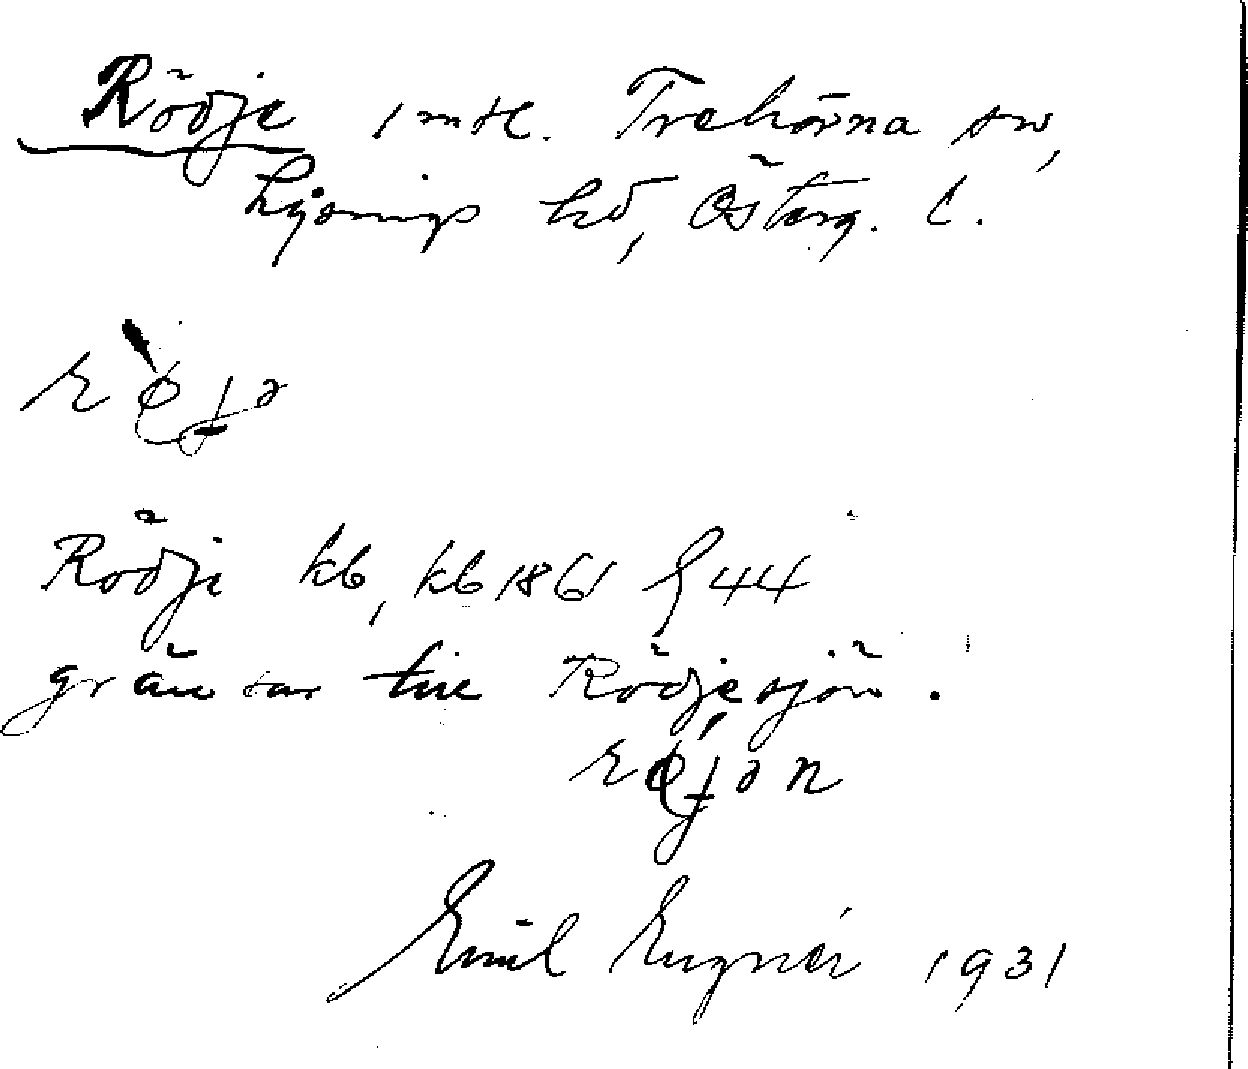 Rödje 1 mtl. Trehörna sn,
Lysings hd, Österg. l.
Rödje kb, kb 1861 § 44
gränsar till Rödjesjön.
Emil Eugnér 1931